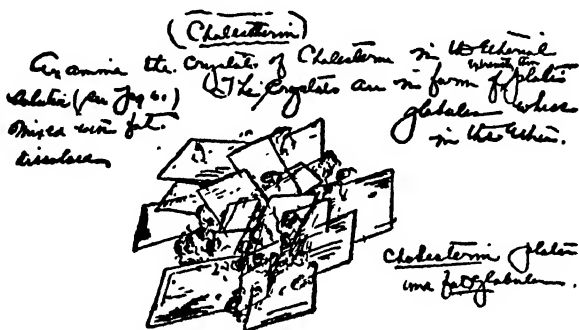 (Cholesterin)
Examine the Crystals of Cholesterin in the Ethereal
Solution (see fig 61) The Crystals are in form of plates
mixed with fat globules which
dissolves in the Ether.
Cholesterin plates
and fat globules.